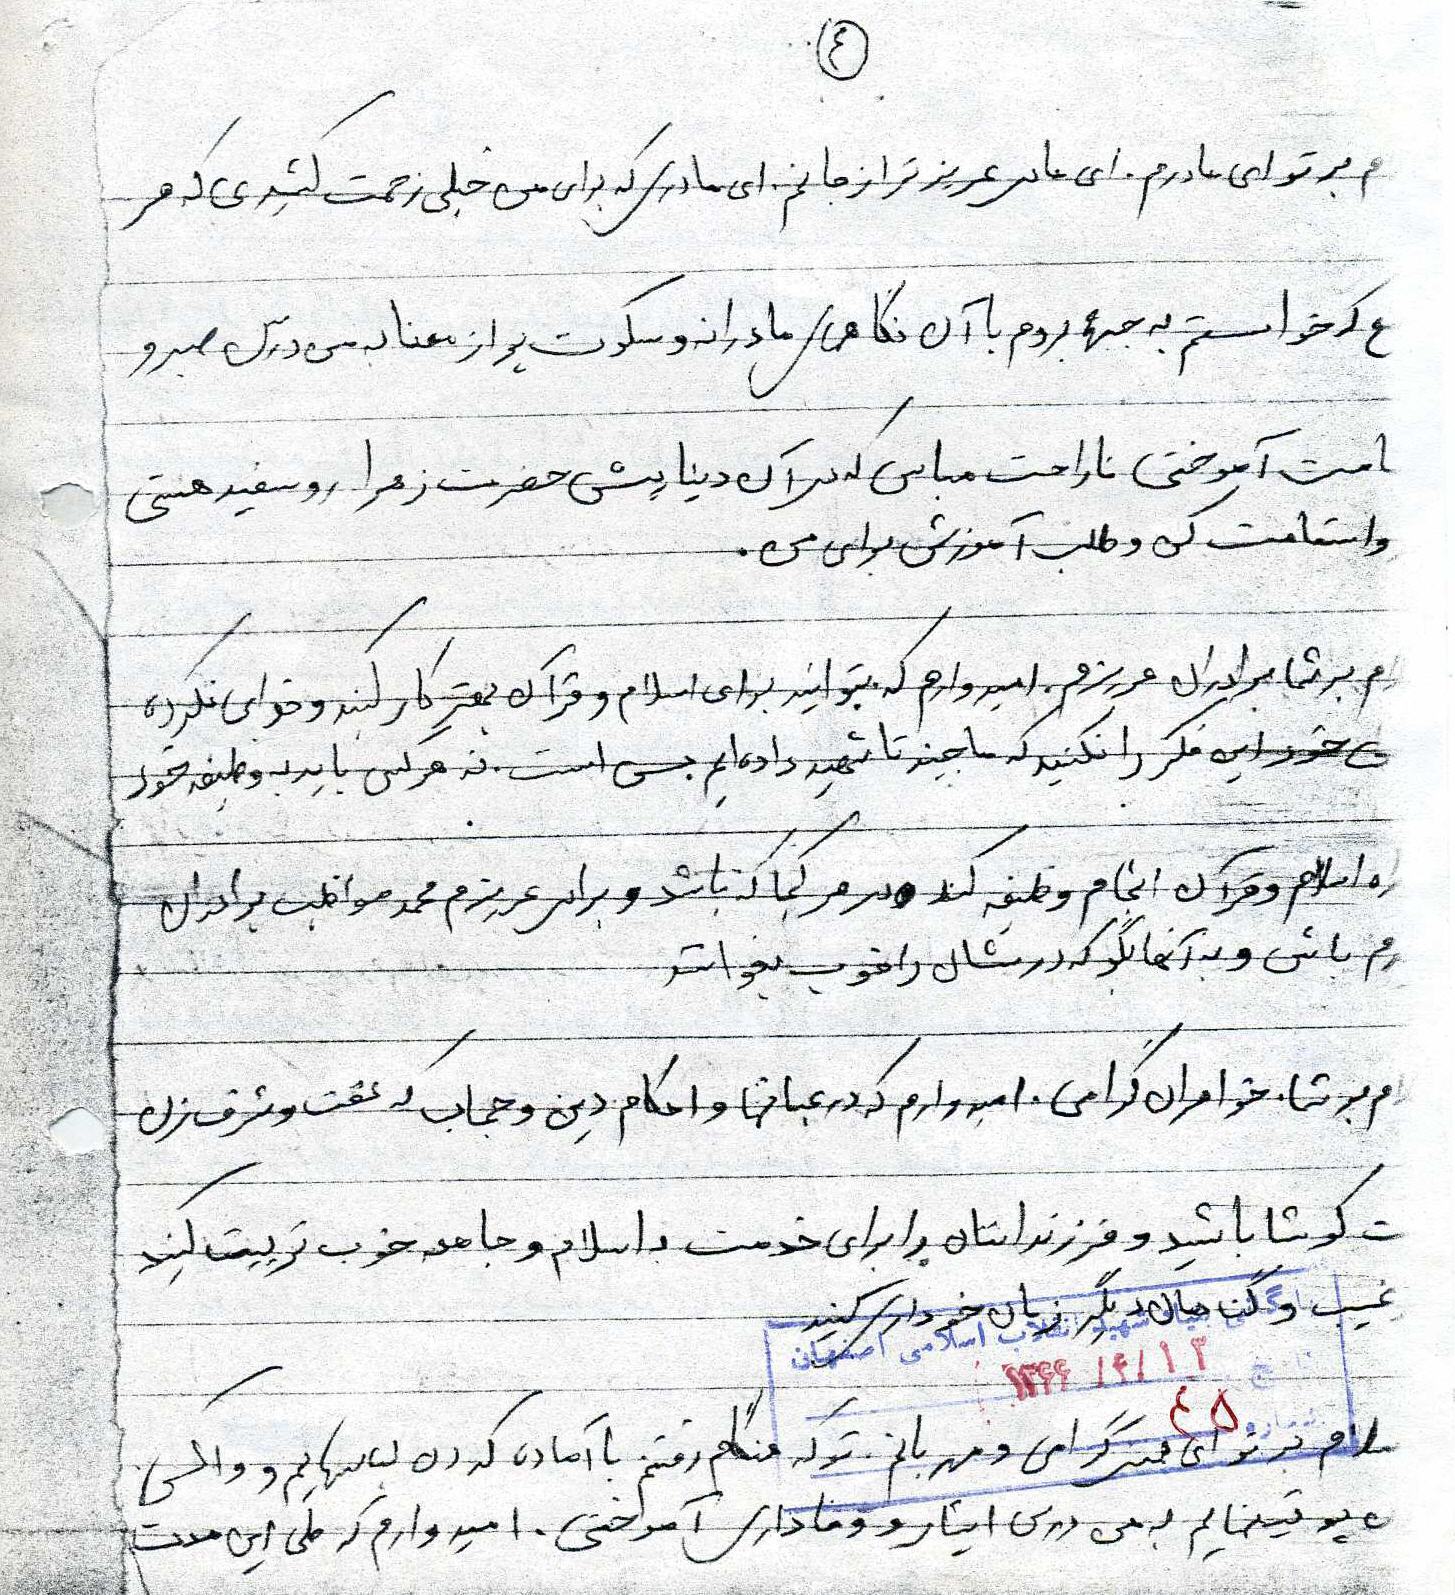 ۴
م بر تو ای مادرم. ای مادر عزیزتر از جانم. ای مادری که برای من خیلی زحمت کشیدی که هر
ع که خواستم به جبهه بروم با آن نگاههای مادرانه و سکوت پر از معنا به من درس صبر و
امت آموختی ناراحت مباش که در آن دنیا پیش حضرت زهرا رو سفید هستی
و استقامت کن و طلب آموزش برای من.
م بر شما برادران عزیزم. امیدوارم که بتوانید برای اسلام و قرآن بهتر کار کنید و خدای نکرده
خود این فکر را نکنید که ما چند تا شهید داده‌ایم بس است. نه هر کس باید به وظیفه خود
ه اسلام و قرآن انجام وظیفه کند در هر کجا که باشد و برادر عزیزم محمد مواظب برادران
م باش و به آنها بگو که درسشان را خوب بخوانند
م بر شما. خواهران گرامی. امیدوارم که در عبادتها و احکام دین و حجاب که عفت و شرف زن
ت کوشا باشید و فرزندانتان را برای خدمت به اسلام و جامعه خوب تربیت کنید
غیبت و گناهان دیگر زبان خودداری کنید
شهید انقلاب اسلامی اصفهان
تاریخ ۱۳۶۶/۴/۱۳
شماره ۴۵
سلام بر تو ای همسر گرامی و مهربانم. تو که هنگام رفتنم با آماده کردن لباسهایم و واکس
ن پوتینهایم به من درس ایثار و وفاداری آموختی. امیدوارم که طی این مدت